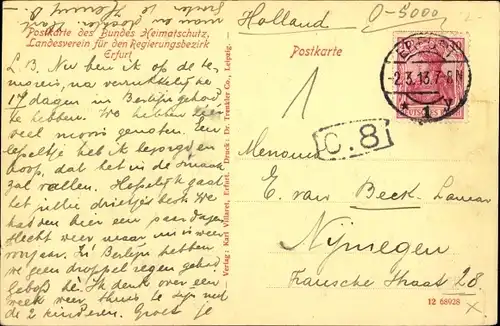 Holland
0-5000
Postkarte des Bundes Heimatschutz,
Landesverein für den Regierungsbezirk
Erfurt
Postkarte
ERFURT
-2.3.13.7-8N
* 1 y
DEUTSCHES REICH
L.B. Nu ben ik op de
na verrukkelijke
17 dagen in Berlijn gehad
te hebben. We hebben zeer
veel moois genoten. Een
lepeltje heb ik bezorgd en
hoop, dat het in de smaak
zal vallen. Hopelijk gaat
het jullie drietjes best. We
hadden hier een paar dagen
slecht weer maar nu is weer
voorjaar. In Berlijn hebben
we geen droppel regen gehad
Ik denk over een
week weer thuis te zijn met
de 2 kinderen. Groet je
1
C.8
Mevrouw
E. van Beck
Nijmegen
Fransche Straat 28.
Verlag: Karl Villaret, Erfurt. Druck: Dr. Trenkler Co., Leipzig.
12 68928